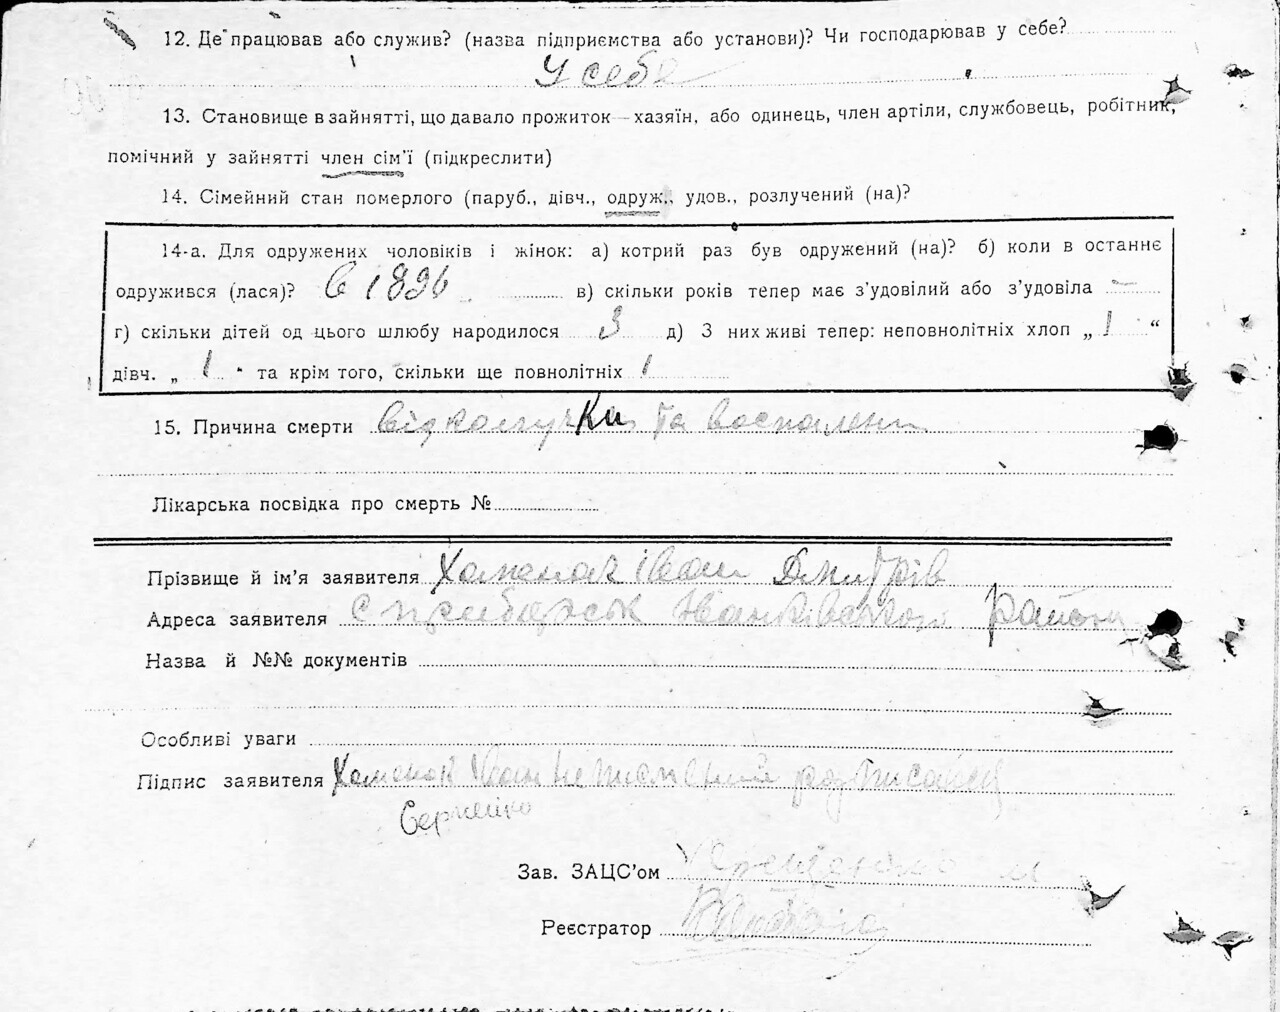 12. Де працював або служив? (назва підприємства або установи)? Чи господарював у себе?
У себе
13. Становище в зайнятті, що давало прожиток — хазяїн, або одинець, член артіли, службовець, робітник,
помічний у зайнятті член сім'ї (підкреслити)
14. Сімейний стан померлого (паруб., дівч., одруж., удов., розлучений (на)?
14-а. Для одружених чоловіків і жінок: а) котрий раз був одружений (на)? б) коли в останнє
одружився (лася)? в 1896 в) скільки років тепер має з'удовілий або з'удовіла —
г) скільки дітей од цього шлюбу народилося 3 д) З них живі тепер: неповнолітніх хлоп „ 1 “
дівч. „ 1 “ та крім того, скільки ще повнолітніх 1
15. Причина смерти від колючки та воспалени
Лікарська посвідка про смерть №
Прізвище й ім'я заявителя Хоменок Іван Дмитрів
Адреса заявителя с Іванківського района
Назва й №№ документів
Особливі уваги
Підпис заявителя Хоменок Іван неписменний розписався
Зав. ЗАЦС'ом
Реєстратор